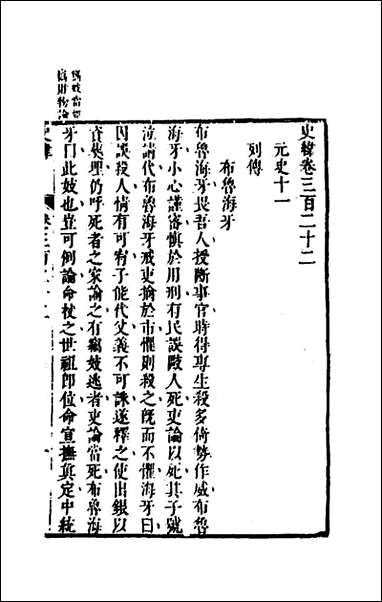 史緯卷三百二十二
元史十一
列傳
布魯海牙
布魯海牙畏吾人授斷事官時得專生殺多倚勢作威布魯
海牙小心謹審慎於用刑有民誤毆人死吏論以死其子號
泣請代布魯海牙戒吏擒於市懼則殺之既而不懼海牙曰
因誤殺人情有可宥子能代父義不可誅遂釋之使出銀以
資葬埋仍呼死者之家諭之有竊妓逃者吏論當死布魯海
牙曰此妓也豈可例論命杖之世祖即位命宣撫眞定中統
竊妓當如
竊財物論
史緯
卷三百二十二
一